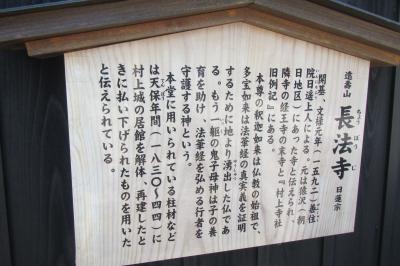 遠壽山
長法寺
ちょうぼうじ
日蓮宗
開基、文禄元年(一五九二)善住
院日遥上人による。元は猿沢(朝
日地区)にあった寺と伝えられ、
隣寺の経王寺の末寺と『村上寺社
旧例記』にある。
本尊の釈迦如来は仏教の始祖で、
多宝如来は法華経の真実義を証明
するために地より湧出した仏であ
る。もう一躯の鬼子母神は子の養
育を助け、法華経を弘める行者を
守護する神という。
本堂に用いられている柱材など
は天保年間(一八三〇〜四四)に
村上城の居館を解体、再建したと
きに払い下げられたものを用いた
と伝えられている。